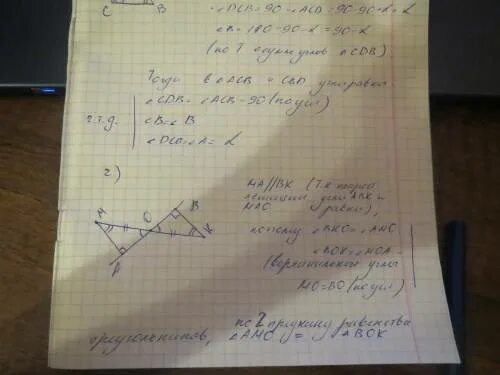 C B
∠DCB=90-∠ACD=90-90-α=α
∠B=180-90-α=90-α
(по Т о сумм углов ∆CDB)
Тогда в ∆ACB и CBD углы равны
∠CDB=∠ACB=90 (по усл)
ч.т.д. ∠B=∠B
∠DCB=∠A=α
2)
M O B K A
MA//BK (т.к. накрест
лежащие углы ABK и
MAO равны),
поэтому ∠BKO=∠AMO
∠BOK=∠MOA
(вертикальные углы
MO=BO (по усл)
по 2 признаку равенства
треугольников, ∆AMO = ∆BOK